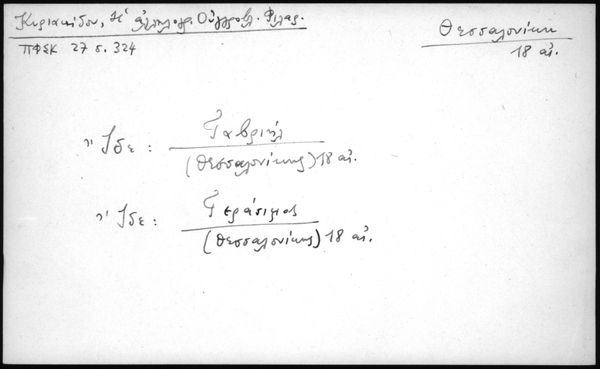 Κυριακίδου, Ἡ ἀλληλογρ. Οὐγγροβλ. Φιλαρ.
ΠΦΣΚ 27 σ. 324
Θεσσαλονίκη
18 αἰ.
Ἴδε: Γαβριήλ
(Θεσσαλονίκης) 18 αἰ.
Ἴδε: Γεράσιμος
(Θεσσαλονίκης) 18 αἰ.